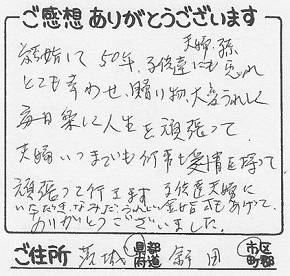 ご感想 ありがとうございます
結婚して 50年、子供達にも 恵まれ
夫婦、孫
とても幸わせ、贈り物、大変うれしく
毎日楽に人生を頑張って
夫婦いつまでも何事も愛情を持って
頑張って行きます 子供達夫婦に
いただきなみだ
ありがとうございました。
ご住所 茨城 都道府県 市区町郡